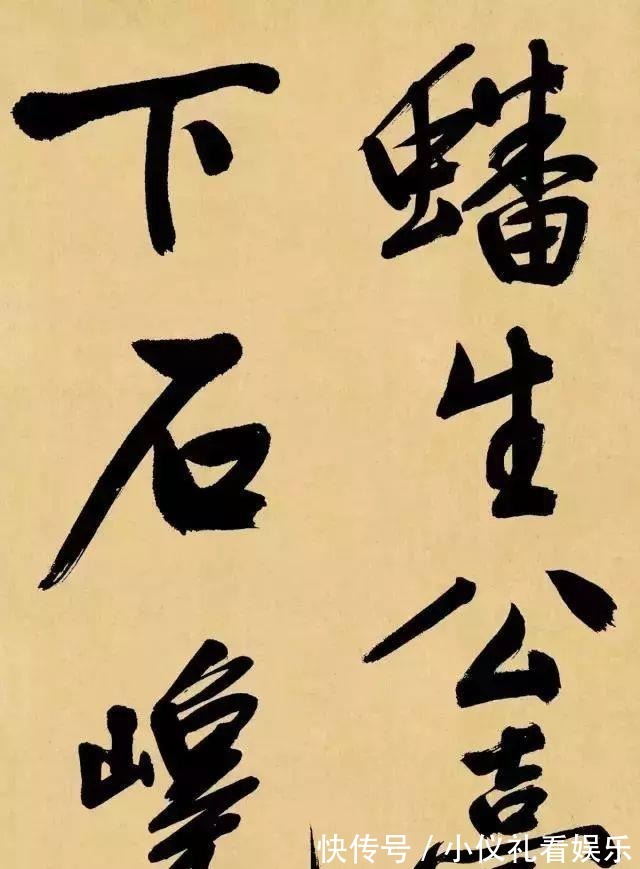 蟠生公
下石
快传号 / 小仪礼看娱乐